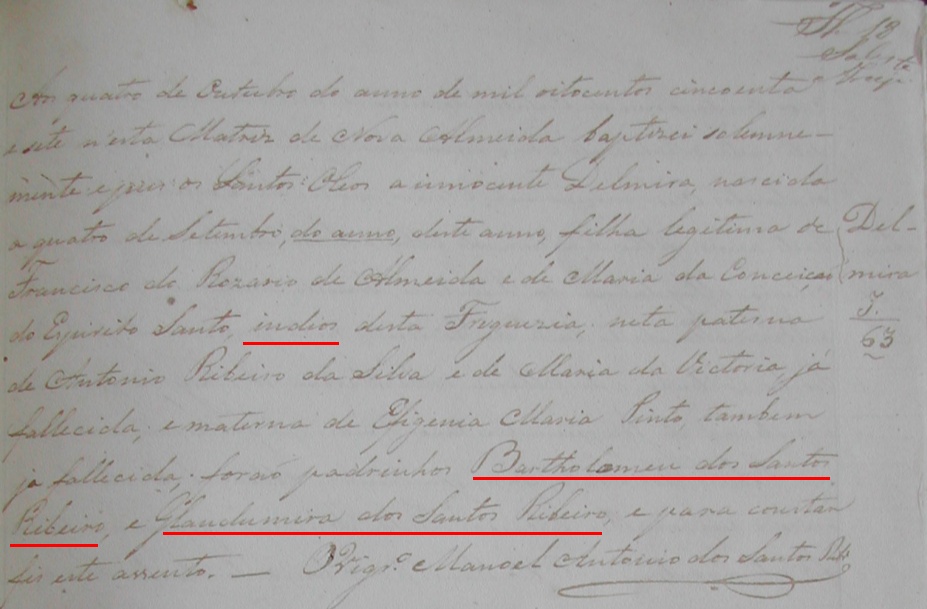 Fl. 18
Aos quatro de Outubro do anno de mil oitocentos cincoenta
e sete n'esta Matriz de Nova Almeida baptizei solemne-
mente e puz os Santos Oleos a innocente Delmira, nascida
a quatro de Setembro, do anno, deste anno, filha legitima de
Francisco do Rozario de Almeida e de Maria da Conceiçaõ
do Espirito Santo, indios desta Freguezia, neta paterna
de Antonio Ribeiro da Silva e de Maria da Victoria, já
fallecida, e materna de Efigenia Maria Pinto, tambem
já fallecida; foraõ padrinhos Bartholomeu dos Santos
Ribeiro, e Glaudumira dos Santos Ribeiro, e para constar
fis este assento. — O Vigrº Manoel Antonio dos Santos Ribrº
Del-
mira
I.
63